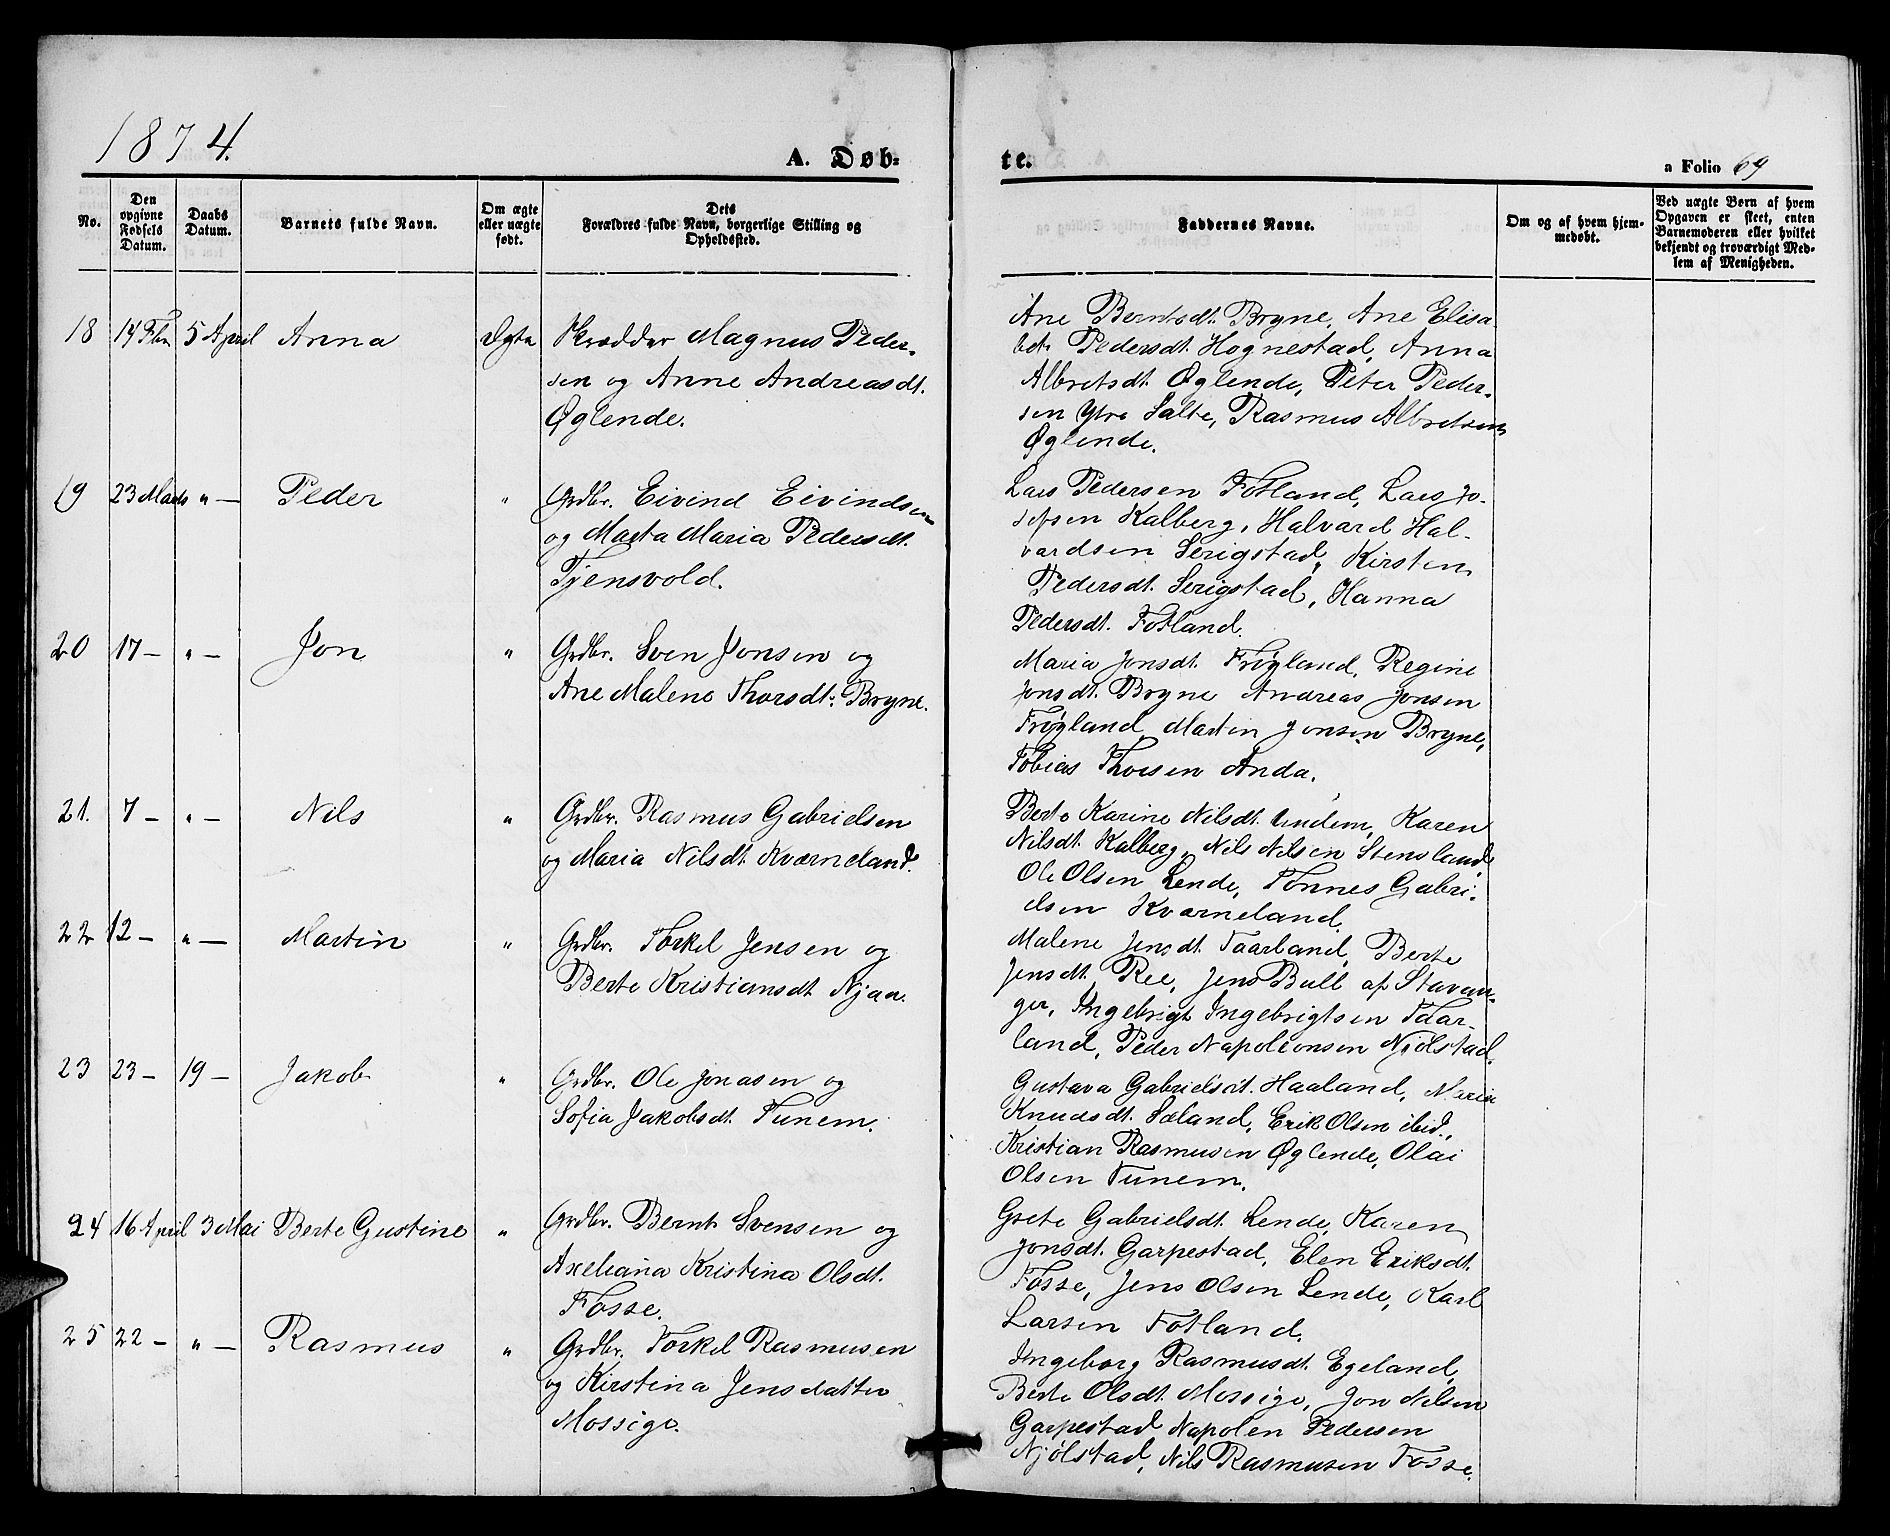 1874.
A. Døb=
te.
a Folio 69
No.
Den opgivne Fødsels Datum.
Daabs Datum.
Barnets fulde Navn.
Om ægte eller uægte født.
Dets Forældres fulde Navn, borgerlige Stilling og Opholdssted.
Faddernes Navne.
Om og af hvem hjemmedøbt.
Ved uægte Børn af hvem Opgaven er skeet, enten Barnemoderen eller hvilket bekjendt og troværdigt Medlem af Menigheden.
18 14 Fbr 5 April Anna Ægte Skrædder Magnus Peder-
sen og Anne Andreasdt.
Øglende.
Ane Berntsdt. Bryne, Ane Elisa-
bet Pedersdt. Hognestad, Anna
Albretsdt. Øglende, Peter Peder-
sen Ytre Salte, Rasmus Albretsen
Øglende.
19 23 Marts " — Peder " Grdbr. Eivind Eivindsen
og Marta Maria Pedersdt.
Tjensvold.
Lars Pedersen Fotland, Lars Jo-
sefsen Kalberg, Halvard Hal-
vardsen Serigstad, Kirsten
Pedersdt. Serigstad, Hanna
Pedersdt. Fotland.
20 17 — " — Jon " Grdbr. Sven Jonsen og
Ane Malene Thorsdt. Bryne.
Maria Jonsdt. Frøyland, Regine
Jonsdt. Bryne Andreas Jonsen
Frøyland, Martin Jonsen Bryne,
Tobias Thorsen Anda.
21. 7 — " — Nils " Grdbr. Rasmus Gabrielsen
og Maria Nilsdt. Kværneland.
Berte Karine Nilsdt. Undem, Karen
Nilsdt. Kalberg, Nils Nilsen Stensland,
Ole Olsen Lende, Tønnes Gabri-
elsen Kværneland.
22 12 — " — Martin " Grdbr. Torkel Jensen og
Berte Kristiansdt. Njaa.
Malene Jensdt. Taarland, Berte
Jensdt. Ree, Jens Bull af Stavan-
ger, Ingebrigt Ingebrigtsen Taar-
land, Peder Napoleonsen Njølstad.
23 23 — 19 — Jakob " Grdbr. Ole Jonasen og
Sofia Jakobsdt. Tunem.
Gustava Gabrielsdt. Haaland,
Knudsdt. Sæland, Erik Olsen ibid.,
Kristian Rasmusen Øglende, Olai
Olsen Tunem.
24 16 April 3 Mai Berte Gustine " Grdbr. Bernt Svensen og
Axeliana Kristina Olsdt.
Fosse.
Grete Gabrielsdt. Lende, Karen
Jonsdt. Garpestad, Elen Eriksdt.
Fosse, Jens Olsen Lende, Karl
Larsen Fotland.
25 22 — " — Rasmus " Grdbr. Torkel Rasmusen
og Kirstina Jensdatter
Mossige.
Ingeborg Rasmusdt. Egeland,
Berte Olsdt. Mossige, Jon Nilsen
Garpestad Napolen Pedersen
Njølstad, Nils Rasmusen Fosse.